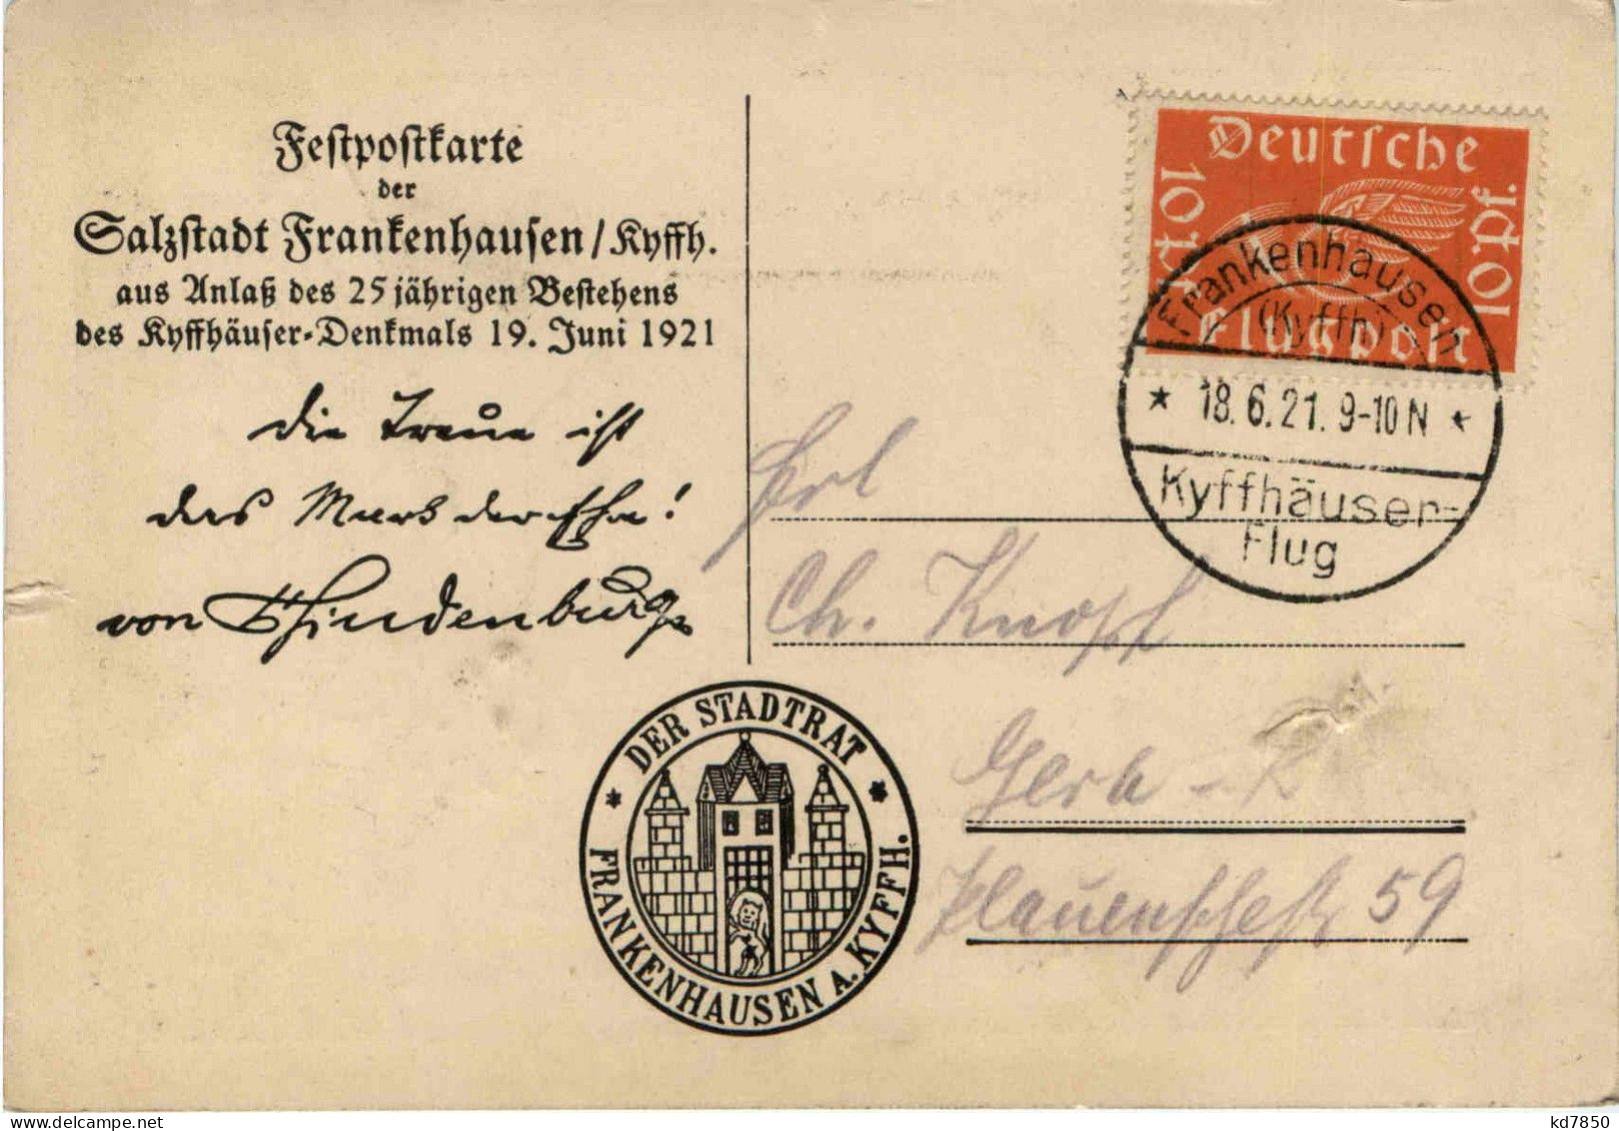 Festpostkarte
der
Salzstadt Frankenhausen/Kyffh.
aus Anlaß des 25jährigen Bestehens
des Kyffhäuser-Denkmals 19. Juni 1921
die Treue ist
das Mark der Ehre!
von Hindenburg
DER STADTRAT
* FRANKENHAUSEN A. KYFFH. *
Deutsche
10 Pf. 10 Pf.
Flugpost
Frankenhausen
(Kyffh)
* 18.6.21. 9-10 N *
Kyffhäuser-
Flug
Frl
Ch. Knopf
Gera - R
Plauenschestr 59
kd7850